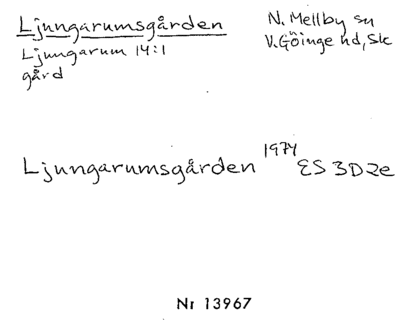 Ljungarumsgården
Ljungarum 14:1
gård
N. Mellby sn
V. Göinge hd, Sk
Ljungarumsgården 1974 ES 3D2e
Nr 13967